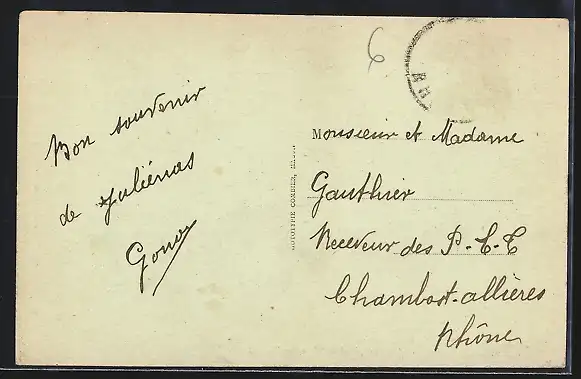 6
Bon souvenir
de Juliénas
Monsieur et Madame
Gauthier
Receveur des P-T-T
Chambost-allières
Rhône
PHOTOTYPIE COMBIER,